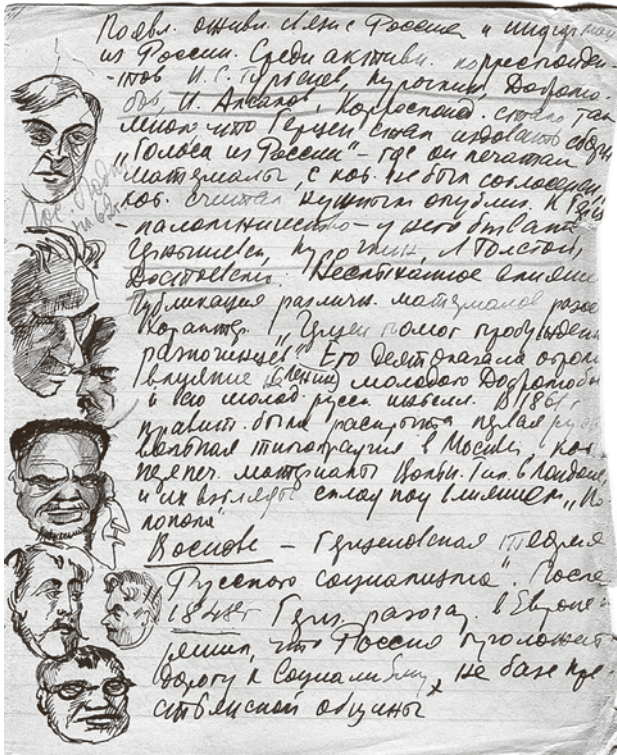 Появл. оживл. связь с Россией и
из России. Среди активн. корреспонден-
-тов И.С. Тургенев, Курочкин, Добролю-
бов, И. Аксаков, Корреспонд. стало так
много что Герцен стал издавать
"Голоса из России" – где он печатал
материалы, с кот. не был согласен,
кот. считал нужным опублик. К
- паломничество – у него бывают
Чернышевск, Л Толстой,
Достоевский.
Публикация различн. материалов
характер. "Герцен помог пробужден
разночинцев". Его деят. оказала огром
влияние (Ленин) молодого Добролюбова
и всю молод. русск интелл. В 1861 г
правит. была раскрыта первая
вольная типография в Москве, кот.
перепеч. материалы Вольн. Тип. в Лондоне
и их взгляды под влиянием
В основе – Герценовская теория
"Русского социализма". После
1848 г Герц. разочар. в Европе и
решил, что Россия проложит
дорогу к Социализму, на базе кре-
стьянской общины